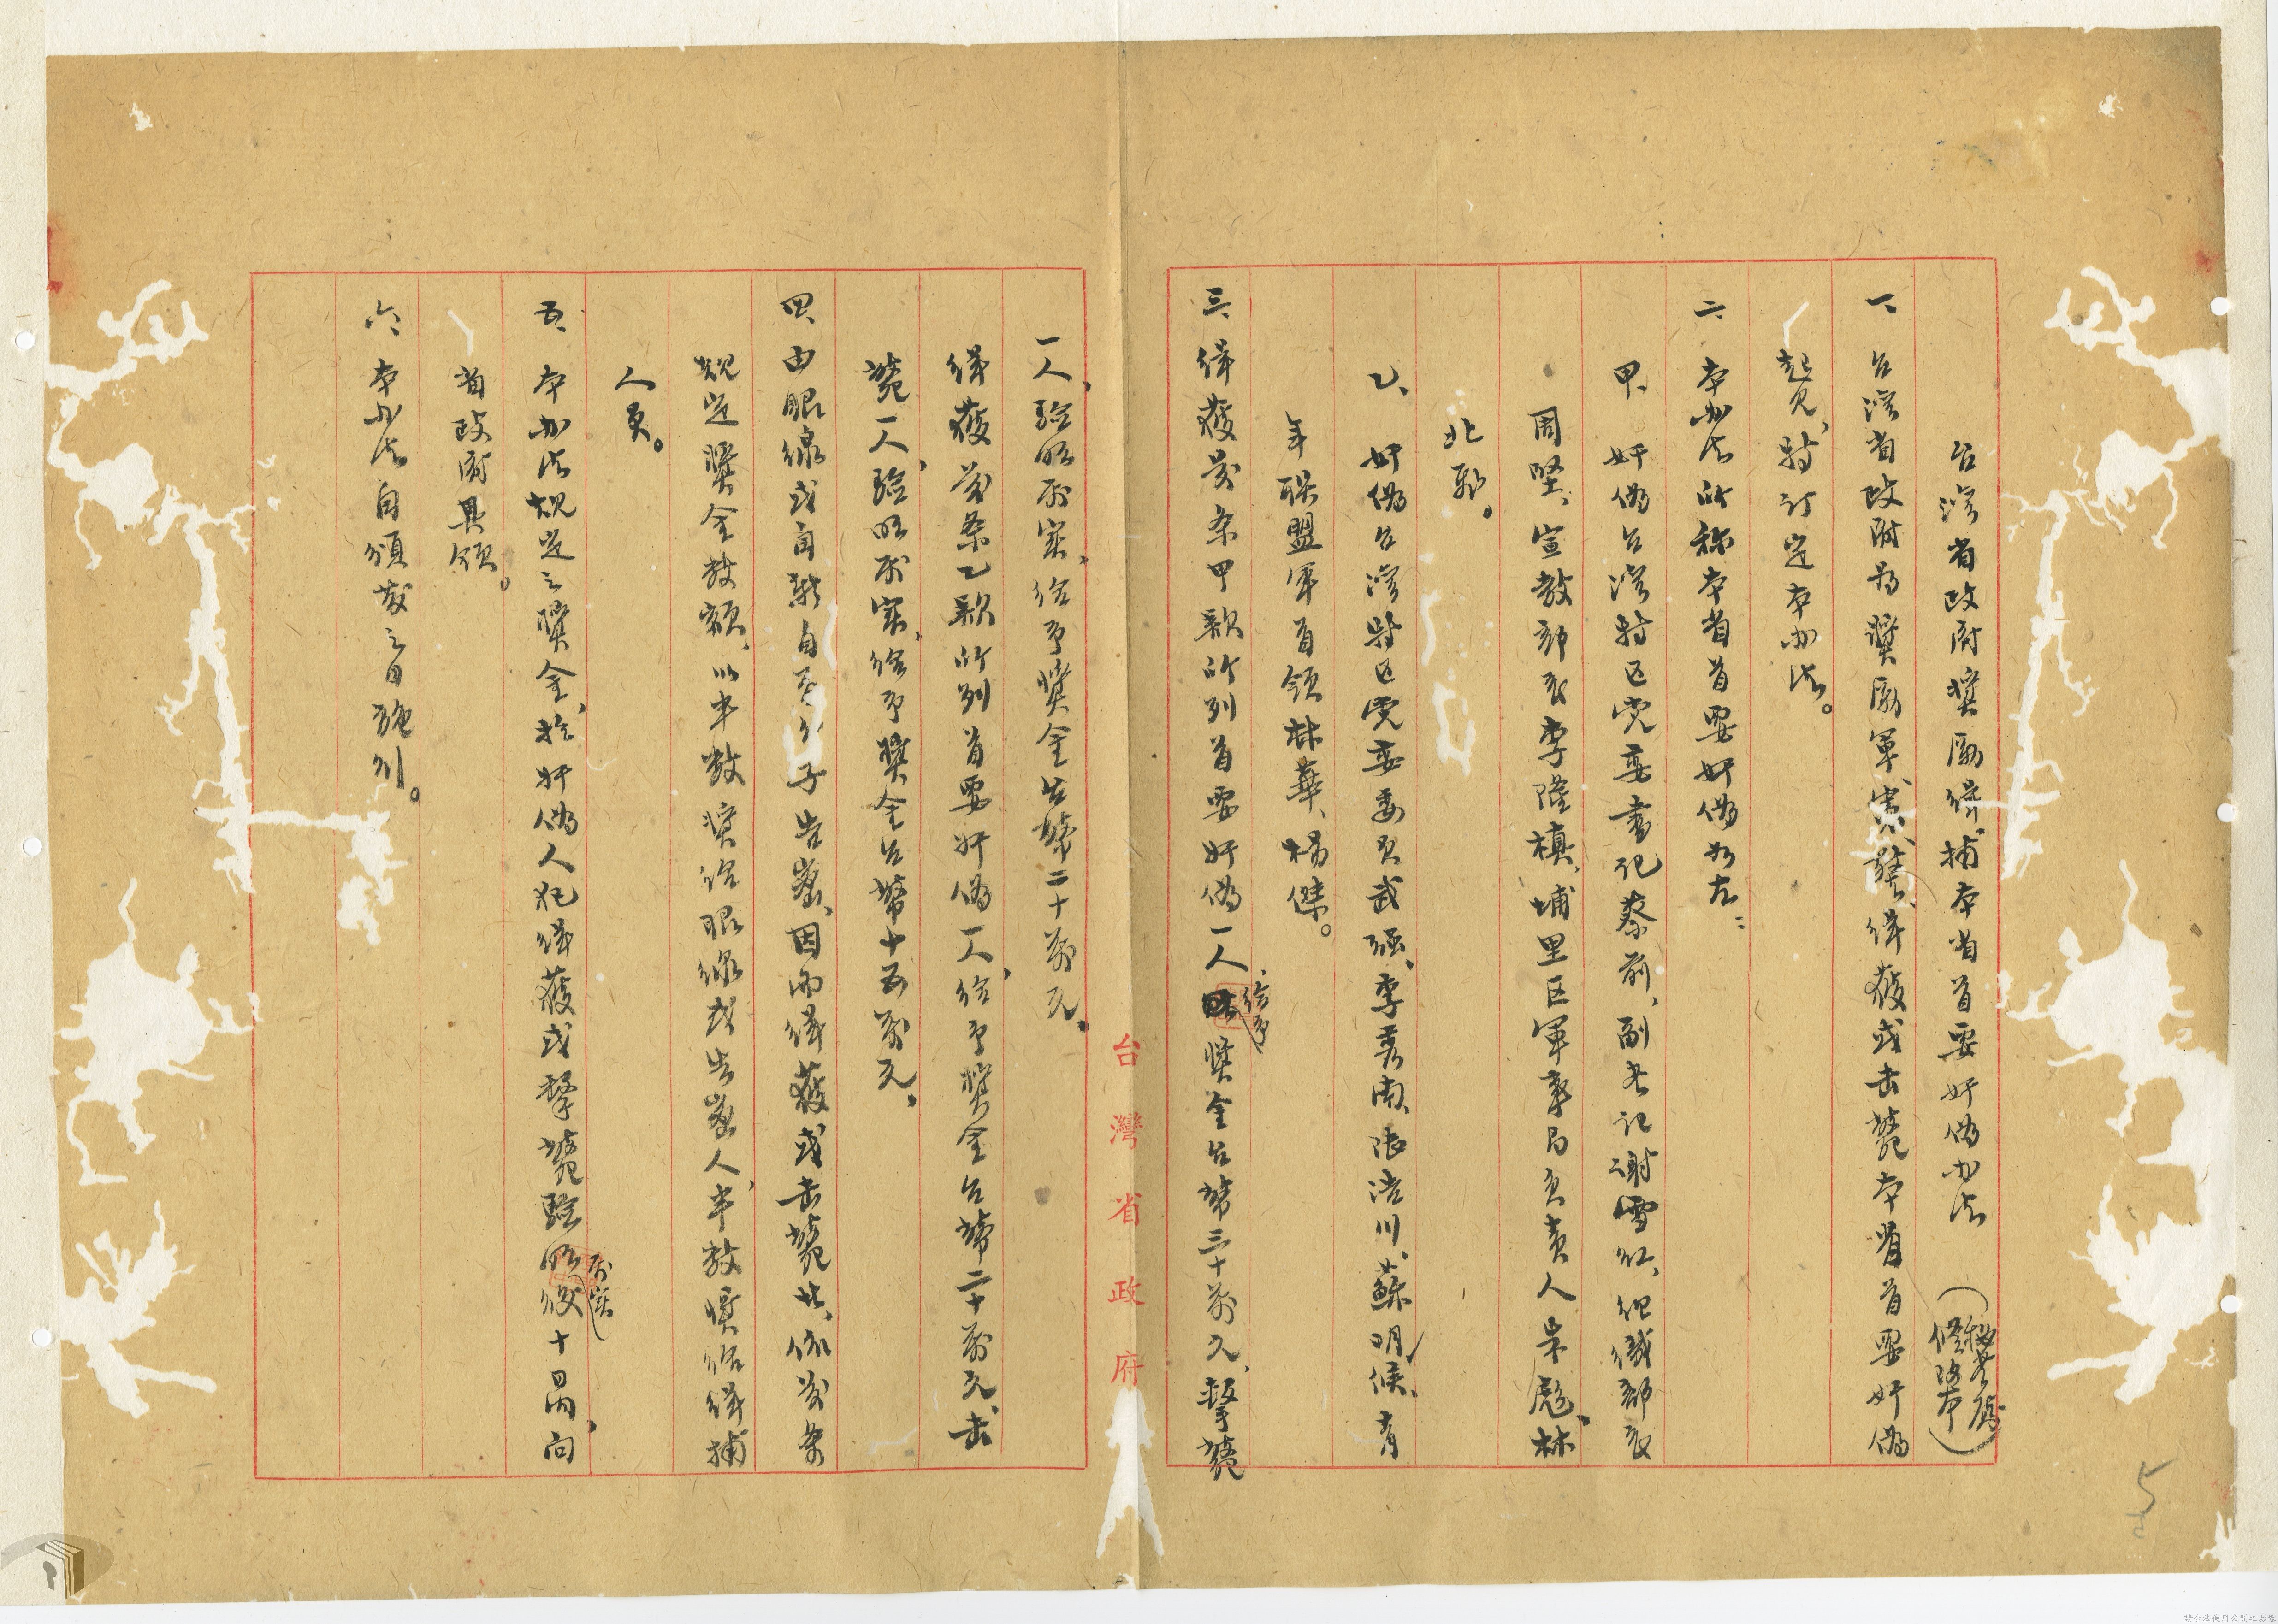 台灣省政府獎勵緝捕本省首要奸偽办法 (秘書處修改本)
一、台灣省政府為獎勵軍、憲、警、緝獲或击斃本省首要奸偽
起見、特訂定本办法。
二、本办法所称本省首要奸偽如左：
甲、奸偽台灣特区党委書記蔡前、副书记謝雪红、组織部長
周堅、宣教部長李隆槙、埔里区軍事局負責人吴彪、林
北彰。
乙、奸偽台灣特区党委委員武强、李喬南、張浩川、蘇明候、青
年聯盟軍首領林華、楊傑。
三、緝獲前条甲款所列首要奸偽一人、给予獎金台幣三十萬元、擊斃
一人、驗明属實、给予獎金台幣二十萬元。
緝獲前条乙款所列首要奸偽一人、给予獎金台幣二十萬元、击
斃一人、驗明属實、给予獎金台幣十五萬元、
四、由眼線或自新自首分子告密、因而緝獲或击斃者、依前条
规定獎金數額、以半數獎给眼線或告密人、半數獎给緝捕
人員。
五、本办法规定之獎金、於奸偽人犯緝獲或擊斃驗明属實後十日內、向
省政府具領。
六、本办法自頒發之日施行。
台灣省政府
5
請合法使用公開之影像